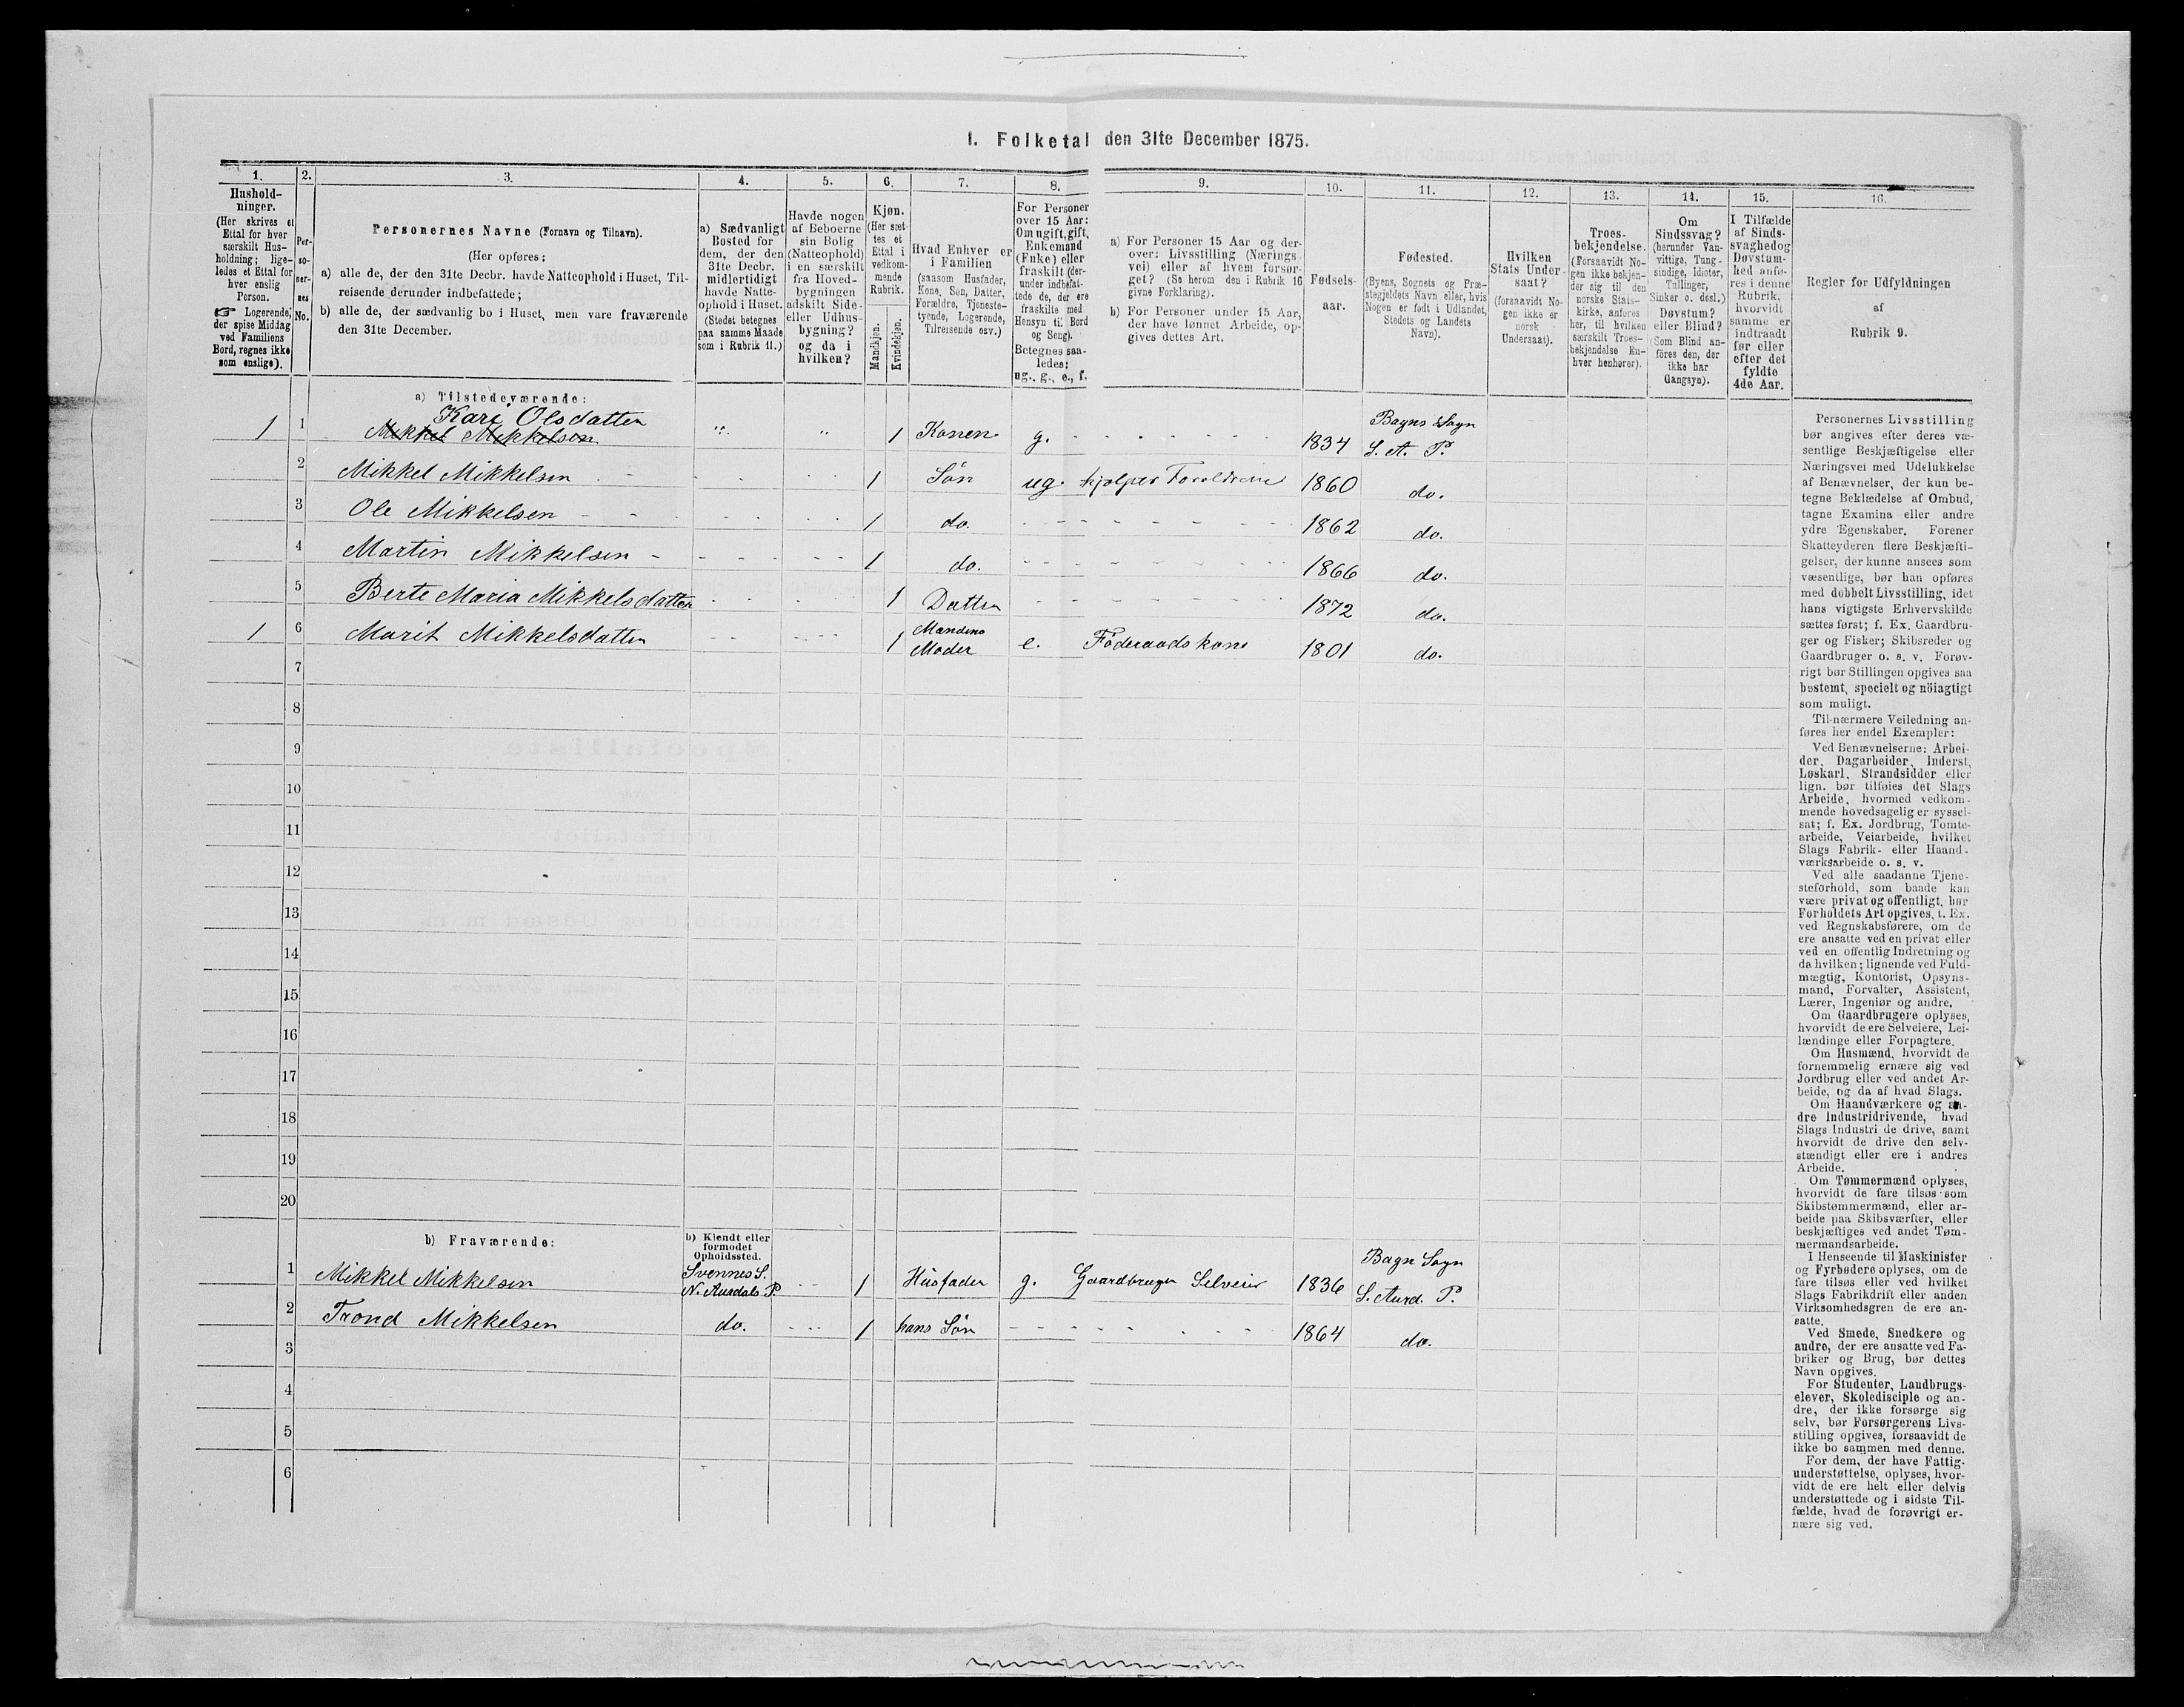 1. Folketal den 31te December 1875.
1.
Hushold-
ninger.
(Her skrives et
Ettal for hver
særskilt Hus-
holdning; lige-
ledes et Ettal for
hver enslig
Person.
☞ Logerende,
der spise Middag
ved Familiens
Bord, regnes ikke
som enslige).
2.
Per-
so-
ner-
nes
No.
3.
Personernes Navne (Fornavn og Tilnavn).
(Her opføres:
a) alle de, der den 31te Decbr. havde Natteophold i Huset, Til-
reisende derunder indbefattede;
b) alle de, der sædvanlig bo i Huset, men vare fraværende
den 31te December.
4.
a) Sædvanligt
Bosted for
dem, der den
31te Decbr.
midlertidigt
havde Natte-
ophold i Huset.
(Stedet betegnes
paa samme Maade
som i Rubrik 11.)
5.
Havde nogen
af Beboerne
sin Bolig
(Natteophold)
i en særskilt
fra Hoved-
bygningen
adskilt Side-
eller Udhus-
bygning?
og da i
hvilken?
6.
Kjøn.
(Her sæt-
tes et
Ettal i
vedkom-
mende
Rubrik.
Mandkjøn.
Kvindekjøn.
7.
Hvad Enhver er
i Familien
(saasom Husfader,
Kone, Søn, Datter,
Forældre, Tjeneste-
tyende, Logerende,
Tilreisende osv.)
8.
For Personer
over 15 Aar:
Om ugift, gift,
Enkemand
(Enke) eller
fraskilt (der-
under indbefat-
tede de, der ere
fraskilte med
Hensyn til Bord
og Seng).
Betegnes saa-
ledes:
ug., g., e., f.
9.
a) For Personer 15 Aar og der-
over: Livsstilling (Nærings-
vei) eller af hvem forsør-
get? (Se herom den i Rubrik 16
givne Forklaring).
b) For Personer under 15 Aar,
der have lønnet Arbeide, op-
gives dettes Art.
10.
Fødsels-
aar.
11.
Fødested.
(Byens, Sognets og Præ-
stegjeldets Navn eller, hvis
Nogen er født i Udlandet,
Stedets og Landets
Navn).
12.
Hvilken
Stats Under-
saat?
(forsaavidt No-
gen ikke er
norsk
Undersaat).
13.
Troes-
bekjendelse.
(Forsaavidt No-
gen ikke bekjen-
der sig til den
norske Stats-
kirke, anføres
her, til hvilken
særskilt Troes-
bekjendelse En-
hver henhører).
14.
Om
Sindssvag?
(herunder Van-
vittige, Tung-
sindige, Idioter,
Tullinger,
Sinker o. desl.)
Døvstum?
eller Blind?
(Som Blind an-
föres den, der
ikke har
Gangsyn).
15.
I Tilfælde
af Sinds-
svaghed og
Døvstum-
hed anfø-
res i denne
Rubrik,
hvorvidt
samme er
indtraadt
før eller
efter det
fyldte
4de Aar.
16.
Regler for Udfyldningen
af
Rubrik 9.
a) Tilstedeværende:
Kari Olsdatter
1 1 Mikkel Mikkelsen " " 1 Konen g. 1834 Bagns Sogn
S. A. P.
2 Mikkel Mikkelsen 1 Søn ug. hjelper Foreldrene 1860 do.
3 Ole Mikkelsen 1 do. 1862 do.
4 Martin Mikkelsen 1 do. 1866 do.
5 Berte Maria Mikkelsdatter 1 Datter 1872 do.
1 6 Marit Mikkelsdatter 1 Mandens
Moder e. Föderaadskone 1801 do.
7
8
9
10
11
12
13
14
15
16
17
18
19
20
b) Fraværende:
b) Kjendt eller
formodet
Opholdssted.
1 Mikkel Mikkelsen Svennes S.
N. Aurdals P. 1 Husfader g. Gaardbruger Selveier 1836 Bagn Sogn
S. Aurd. P.
2 Trond Mikkelsen do. 1 hans Søn 1864 do.
3
4
5
6
Personernes Livsstilling
bør angives efter deres væ-
sentlige Beskjæftigelse eller
Næringsvei med Udelukkelse
af Benævnelser, der kun be-
tegne Beklædelse af Ombud,
tagne Examina eller andre
ydre Egenskaber. Forener
Skatteyderen flere Beskjæfti-
gelser, der kunne ansees som
væsentlige, bør han opføres
med dobbelt Livsstilling, idet
hans vigtigste Erhvervskilde
sættes først; f. Ex. Gaardbru-
ger og Fisker; Skibsreder og
Gaardbruger o. s. v. Forøv-
rigt bør Stillingen opgives saa
bestemt, specielt og nöiagtigt
som muligt.
Til nærmere Veiledning an-
føres her endel Exempler:
Ved Benævnelserne: Arbei-
der, Dagarbeider, Inderst,
Løskarl, Strandsidder eller
lign. bør tilføies det Slags
Arbeide, hvormed vedkom-
mende hovedsagelig er syssel-
sat; f. Ex. Jordbrug, Tomte-
arbeide, Veiarbeide, hvilket
Slags Fabrik- eller Haand-
værksarbeide o. s. v.
Ved alle saadanne Tjene-
steforhold, som baade kan
være privat og offentligt, bør
Forholdets Art opgives, t. Ex.
ved Regnskabsførere, om de
ere ansatte ved en privat eller
ved en offentlig Indretning og
da hvilken; lignende ved Fuld-
mægtig, Kontorist, Opsyns-
mand, Forvalter, Assistent,
Lærer, Ingeniør og andre.
Om Gaardbrugere oplyses,
hvorvidt de ere Selveiere, Lei-
lændinge eller Forpagtere.
Om Husmænd, hvorvidt de
fornemmelig ernære sig ved
Jordbrug eller ved andet Ar-
beide, og da af hvad Slags.
Om Haandværkere og an-
dre Industridrivende, hvad
Slags Industri de drive, samt
hvorvidt de drive den selv-
stændigt eller ere i andres
Arbeide.
Om Tømmermænd oplyses,
hvorvidt de fare tilsøs som
Skibstømmermænd, eller ar-
beide paa Skibsværfter, eller
beskjæftiges ved andet Tøm-
mermandsarbeide.
I Henseende til Maskinister
og Fyrbødere oplyses, om de
fare tilsøs eller ved hvilket
Slags Fabrikdrift eller anden
Virksomhedsgren de ere an-
satte.
Ved Smede, Snedkere og
andre, der ere ansatte ved Fa-
briker og Brug, bør dettes
Navn opgives.
For Studenter, Landbrugs-
elever, Skoledisciple og an-
dre, der ikke forsørge sig
selv, bør Forsørgerens Livs-
stilling opgives, forsaavidt de
ikke bo sammen med denne.
For dem, der have Fattig-
understøttelse, oplyses, hvor-
vidt de ere helt eller delvis
understøttede og i sidste Til-
fælde, hvad de forøvrigt er-
nære sig ved.